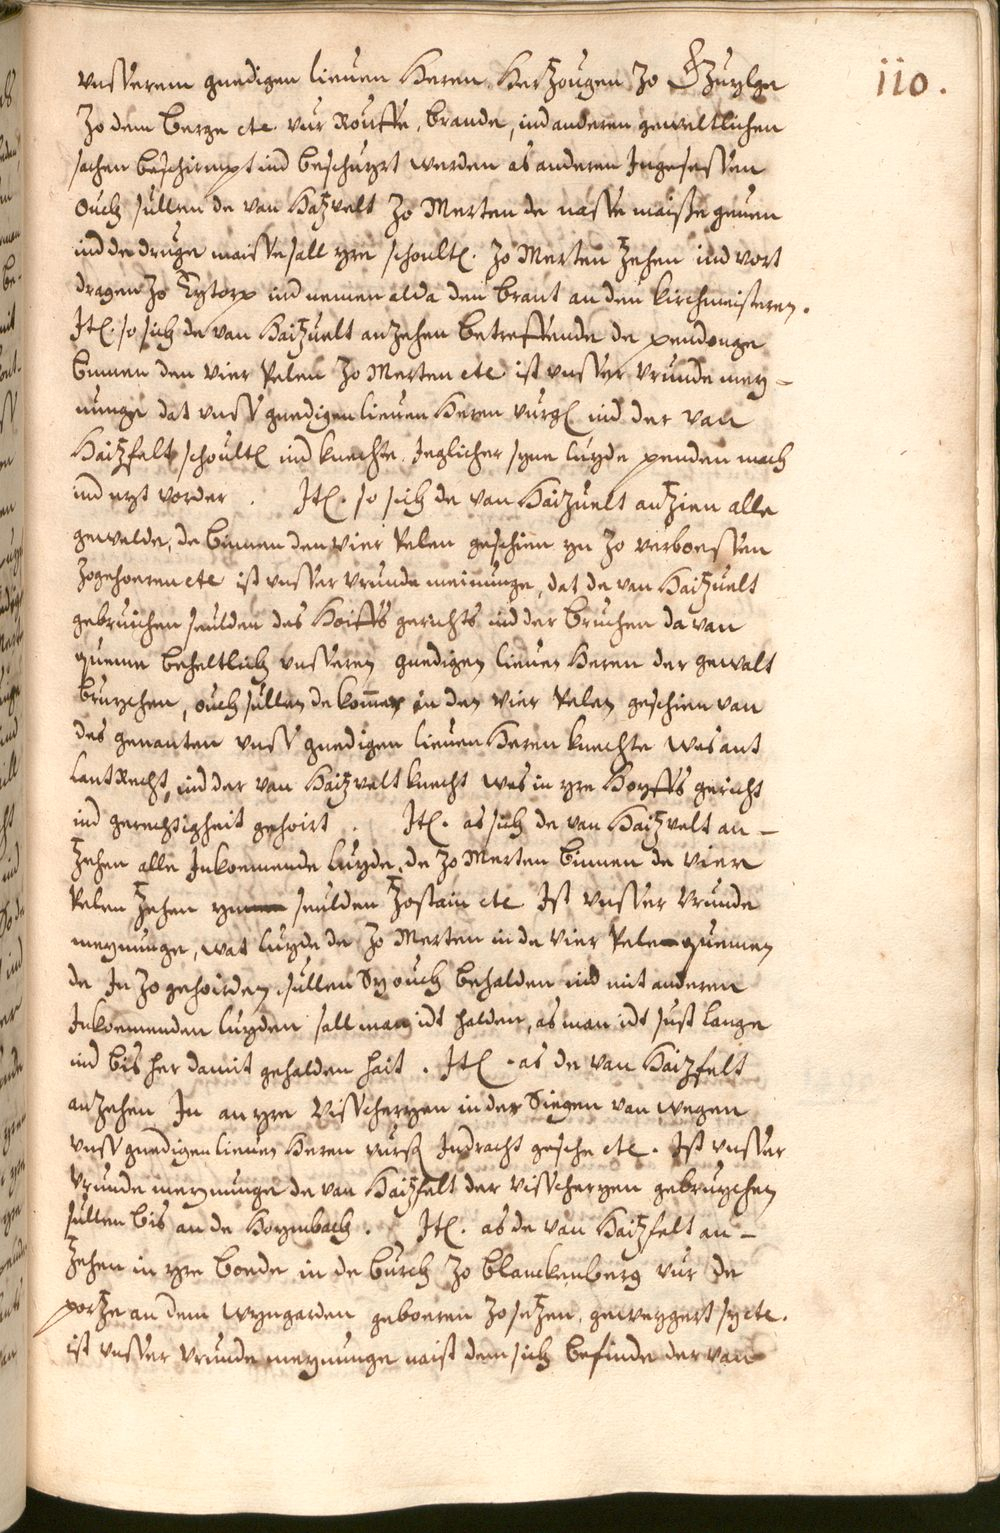 110.
vnsserem gnedigen lieuen Heren Hertzougen zo Guylge
zo dem Berge etc. vur Rouffe, brande, ind anderen geweltlichen
sachen beschirmpt ind beschuyrt werden as anderen Ingesessen
Ouch sullen de van Hatzvelt zo Merten de nasse maisse geuen
ind de druge maisse sall yre schoultß. zo Merten zehen ind vort
dragen zo Eytorp ind nemen alda den brant an den kirchmeisteren.
Jtß so sich de van Haitzuelt anzehen betreffende de pendonge
binnen den vier Pelen zo Merten etc ist vnsser vrunde mey-
nunge dat vnss gnedigen lieuen Heren vurgß ind der van
Haitzfelt schoultß ind knechte Jeglicher syne luyde penden mach
ind nyt vorder. Jtß. so sich de van Haitzuelt anzien alle
gewelde, de binnen den vier Pelen geschien yn zo verboessen
zogehoeren etc ist vnsser vrunde meinunge, dat de van Haitzuelt
gebruichen seulden des Hoiffs gerichts ind der bruchen da van
queme beheltlich vnsseren gnedigen lieuen Heren der gewalt
bruychen, ouch sullen de kommer in den vier Pelen geschien van
des genanten vnss gnedigen lieuen Heren knechte was ant
Lantrecht, ind der van Haitzvelt knecht was in yre Hoyffs gericht
ind gerechtigheit gehoirt. Jtß. as sich de van Haitzvelt an-
zehen alle Inkoemende luyde, de zo Merten binnen de vier
Pelen zehen yn seulden zostain etc Ist vnsser vrunde
meynunge, wat luyde de zo Merten in de vier Pelen quemen
de In zogehoirden, sullen Sy ouch behalden ind mit anderen
Inkoemenden luyden sall man idt halden, as man idt sust lange
ind bis her damit gehalden hait. Jtß. as de van Haitzfelt
anzehen In an yre Visscheryen in der Siegen van wegen
vnss gnedigen lieuen Heren vurß Indracht gesche etc. Ist vnsser
vrunde meynunge de van Haitzfelt der visscheryen gebruychen
sullen bis an de Hoymbach. Jtß. as de van Haitzfelt an-
zehen in yre boede in de burch zo Blanckenberg vur de
portze an dem wyngarden geboeren zo setzen, geweygert sy etc.
ist vnsser vrunde meynunge naist dem sich befinde der van